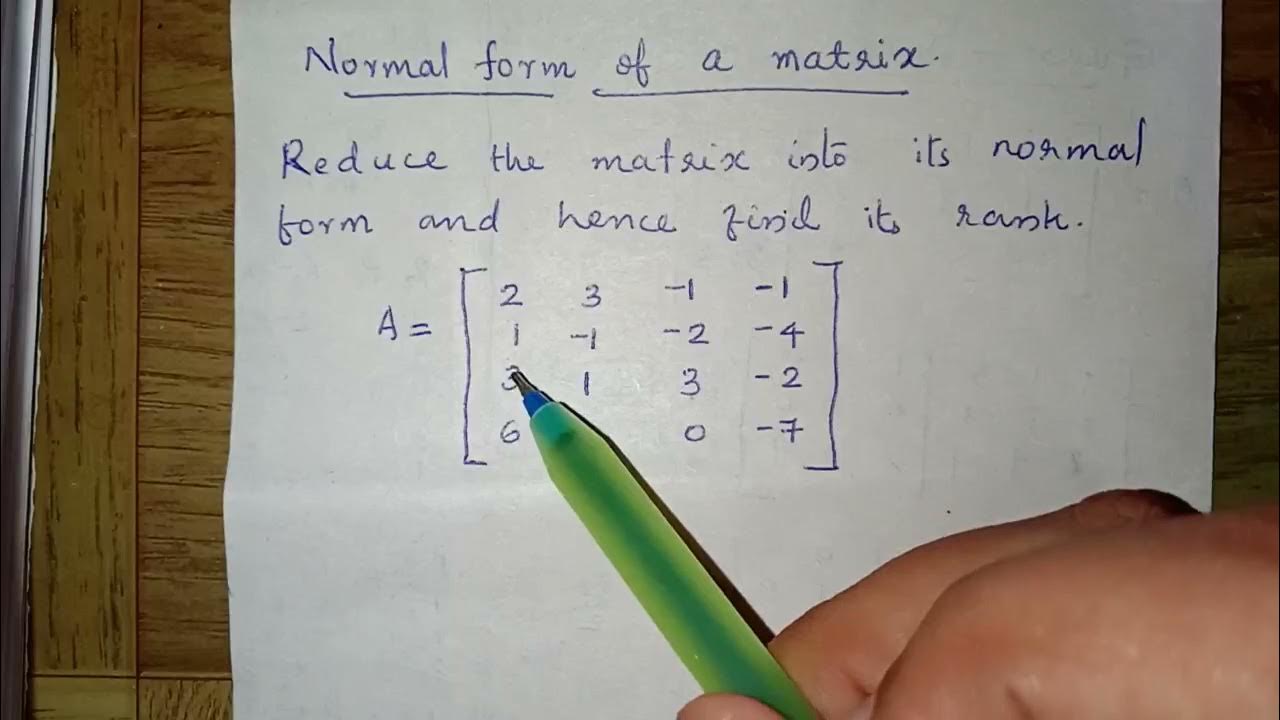 Normal form of a matrix.
Reduce the matrix into its normal
form and hence find its rank.
A = [ 2 3 -1 -1
1 -1 -2 -4
3 1 3 -2
6 0 -7 ]